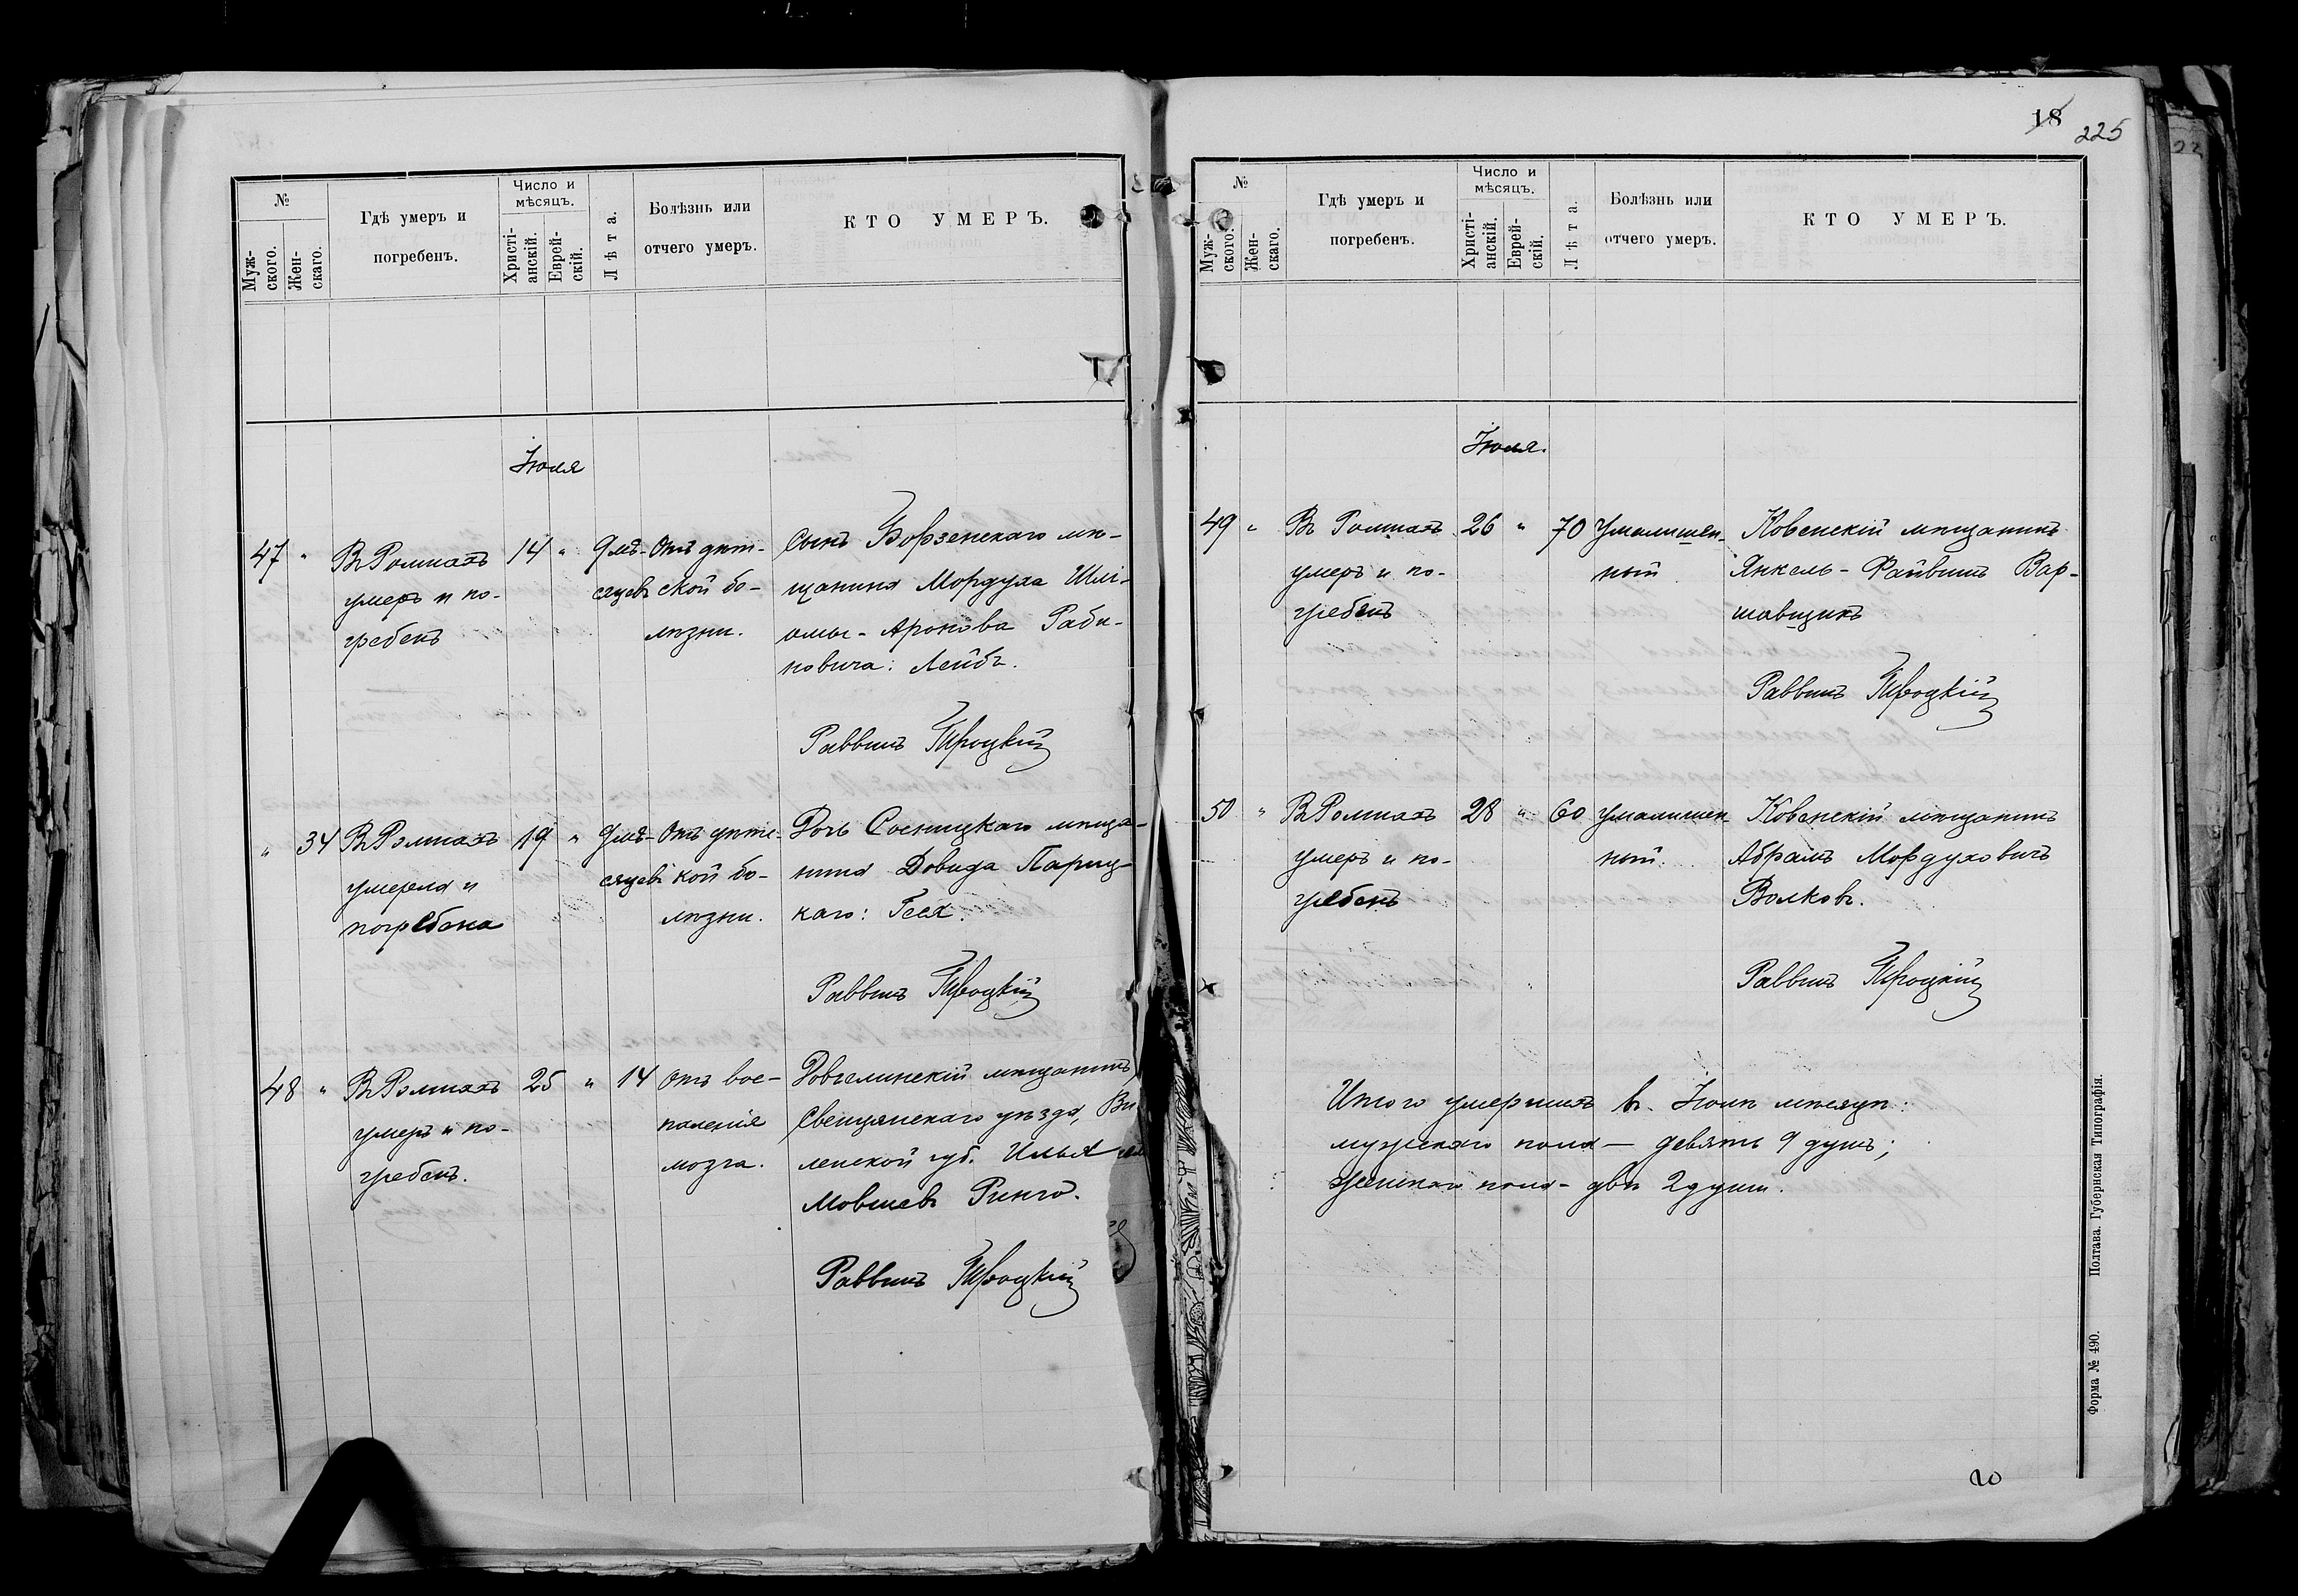 №
Муж-
ского.
Жен-
скаго.
Гдѣ умеръ и
погребенъ.
Число и
мѣсяцъ.
Христі-
анскій.
Еврей-
скій.
Лѣта.
Болѣзнь или
отчего умеръ.
КТО УМЕРЪ.
Іюля
47 " Въ Ромнахъ
умеръ и по-
гребенъ
14 " 9 мѣ-
сяцевъ
Отъ дѣт-
ской бо-
лѣзни.
Сынъ Борзенскаго мѣ-
щанина Мордуха Шлі-
омы-Аронова Раби-
новича: Лейбъ.
Раввинъ Троцкій
" 34 Въ Ромнахъ
умерла и
погребена
19 " 9 мѣ-
сяцевъ
Отъ дѣтс-
кой бо-
лѣзни.
Дочь Сосницкаго мѣща-
нина Довида Париц-
каго: Гея.
Раввинъ Троцкій
48 " Въ Ромнахъ
умеръ и по-
гребенъ.
25 " 14
Отъ вос-
паленія
мозга.
мѣщанинъ,
Свенцянскаго уѣзда, Ви-
ленской губ. Илья
Мовшевъ Ринго.
Раввинъ Троцкій
18 225
№
Муж-
ского.
Жен-
скаго.
Гдѣ умеръ и
погребенъ.
Число и
мѣсяцъ.
Христі-
анскій.
Еврей-
скій.
Лѣта.
Болѣзнь или
отчего умеръ.
КТО УМЕРЪ.
Іюля.
49 " Въ Ромнахъ
умеръ и по-
гребенъ
26 " 70
Умалишен-
ный
Ковенскій мѣщанинъ
Янкель-Файвишъ Вар-
шавщикъ
Раввинъ Троцкій
50 " Въ Ромнахъ
умеръ и по-
гребенъ
28 " 60
Умалишен-
ный.
Ковенскій мѣщанинъ
Абрамъ Мордуховичъ
Волковъ.
Раввинъ Троцкій
Итого умершихъ въ Іюлѣ мѣсяцѣ:
мужскаго пола — девять 9 душъ;
женскаго пола - двѣ 2 души.
Форма № 490. Полтава. Губернская Типографія.